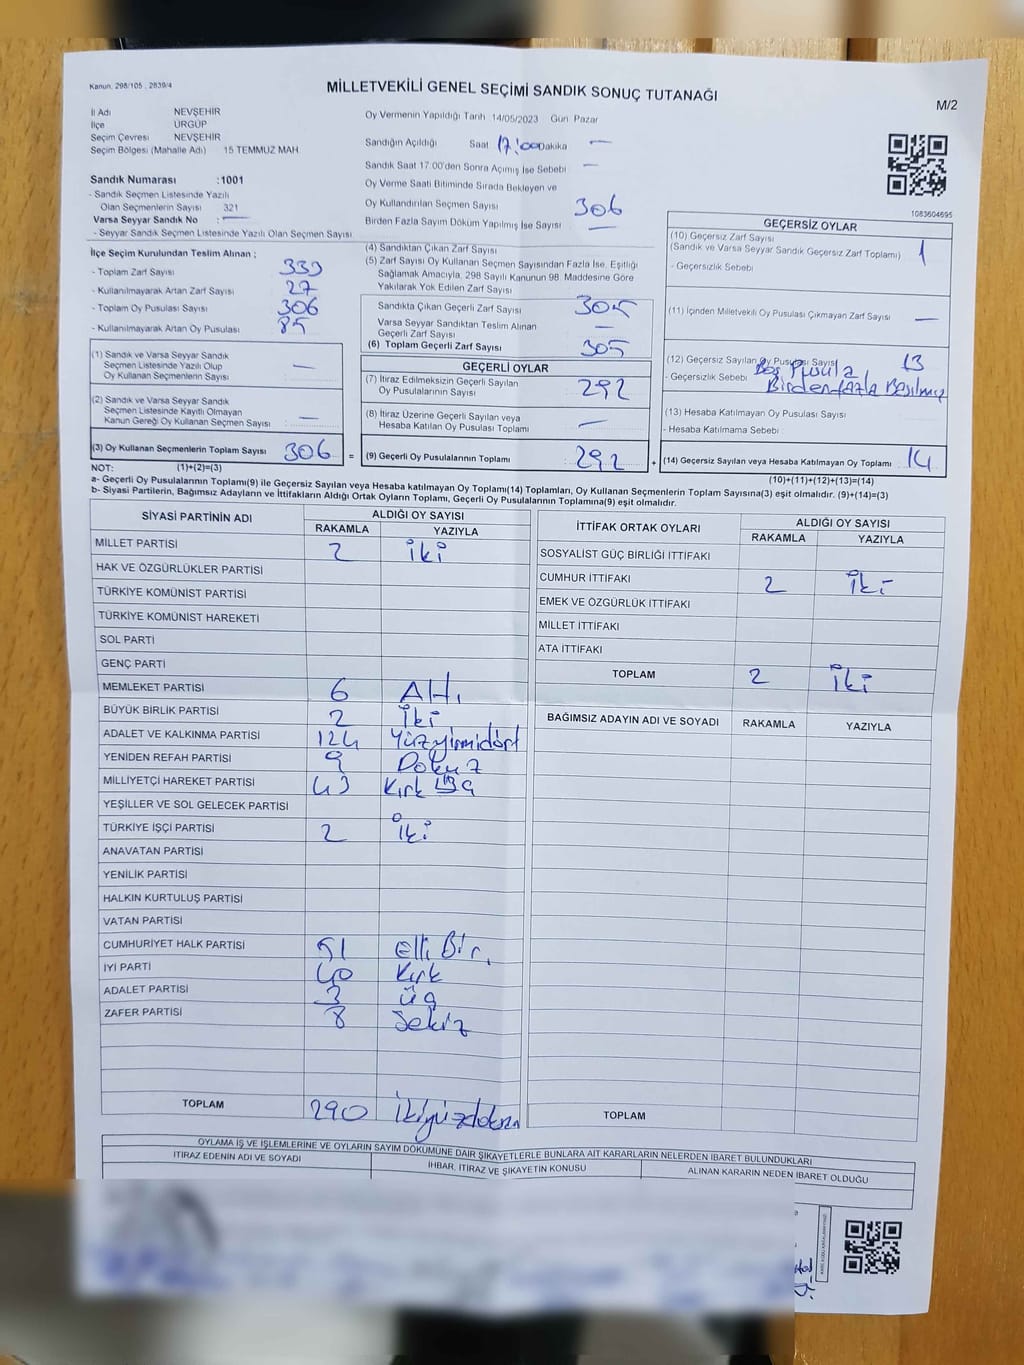 Kanun, 298/105 , 2839/4
MİLLETVEKİLİ GENEL SEÇİMİ SANDIK SONUÇ TUTANAĞI
M/2
İl Adı NEVŞEHİR
İlçe ÜRGÜP
Seçim Çevresi NEVŞEHİR
Seçim Bölgesi (Mahalle Adı) 15 TEMMUZ MAH.
Sandık Numarası :1001
- Sandık Seçmen Listesinde Yazılı
Olan Seçmenlerin Sayısı 321
Varsa Seyyar Sandık No : —
- Seyyar Sandık Seçmen Listesinde Yazılı Olan Seçmen Sayısı
Oy Vermenin Yapıldığı Tarih 14/05/2023 Gün Pazar
Sandığın Açıldığı Saat 17:00 Dakika —
Sandık Saat 17:00'den Sonra Açımış İse Sebebi —
Oy Verme Saati Bitiminde Sırada Bekleyen ve
Oy Kullandırılan Seçmen Sayısı 306
Birden Fazla Sayım Döküm Yapılmış İse Sayısı —
1083604695
İlçe Seçim Kurulundan Teslim Alınan ;
- Toplam Zarf Sayısı 333
- Kullanılmayarak Artan Zarf Sayısı 27
- Toplam Oy Pusulası 306
- Kullanılmayarak Artan Oy Pusulası 85
(1) Sandık ve Varsa Seyyar Sandık
Seçmen Listesinde Yazılı Olup
Oy Kullanan Seçmenlerin Sayısı : —
(2) Sandık ve Varsa Seyyar Sandık
Seçmen Listesinde Kayıtlı Olmayan
Kanun Gereği Oy Kullanan Seçmen Sayısı : —
(3) Oy Kullanan Seçmenlerin Toplam Sayısı 306 =
(4) Sandıktan Çıkan Zarf Sayısı
(5) Zarf Sayısı Oy Kullanan Seçmen Sayısından Fazla İse, Eşitliği
Sağlamak Amacıyla, 298 Sayılı Kanunun 98. Maddesine Göre
Yakılarak Yok Edilen Zarf Sayısı
Sandıkta Çıkan Geçerli Zarf Sayısı 305
Varsa Seyyar Sandıktan Teslim Alınan
Geçerli Zarf Sayısı —
(6) Toplam Geçerli Zarf Sayısı 305
GEÇERLİ OYLAR
(7) İtiraz Edilmeksizin Geçerli Sayılan
Oy Pusulalarının Sayısı 292
(8) İtiraz Üzerine Geçerli Sayılan veya
Hesaba Katılan Oy Pusulası Toplamı —
(9) Geçerli Oy Pusulalarının Toplamı : 292 +
GEÇERSİZ OYLAR
(10) Geçersiz Zarf Sayısı
(Sandık ve Varsa Seyyar Sandık Geçersiz Zarf Toplamı) 1
- Geçersizlik Sebebi
(11) İçinden Milletvekili Oy Pusulası Çıkmayan Zarf Sayısı —
(12) Geçersiz Sayılan Oy Pusulası Sayısı 13
- Geçersizlik Sebebi Boş Pusula
Birden fazla Basılmış
(13) Hesaba Katılmayan Oy Pusulası Sayısı
- Hesaba Katılmama Sebebi
(14) Geçersiz Sayılan veya Hesaba Katılmayan Oy Toplamı 14
NOT: (1)+(2)=(3) (10)+(11)+(12)+(13)=(14)
a- Geçerli Oy Pusulalarının Toplamı(9) ile Geçersiz Sayılan veya Hesaba katılmayan Oy Toplamı(14) Toplamları, Oy Kullanan Seçmenlerin Toplam Sayısına(3) eşit olmalıdır. (9)+(14)=(3)
b- Siyasi Partilerin, Bağımsız Adayların ve İttifakların Aldığı Ortak Oyların Toplamı, Geçerli Oy Pusulalarının Toplamına(9) eşit olmalıdır.
SİYASİ PARTİNİN ADI ALDIĞI OY SAYISI
RAKAMLA YAZIYLA
MİLLET PARTİSİ 2 iki
HAK VE ÖZGÜRLÜKLER PARTİSİ
TÜRKİYE KOMÜNİST PARTİSİ
TÜRKİYE KOMÜNİST HAREKETİ
SOL PARTİ
GENÇ PARTİ
MEMLEKET PARTİSİ 6 Altı
BÜYÜK BİRLİK PARTİSİ 2 İki
ADALET VE KALKINMA PARTİSİ 124 Yüzyirmidört
YENİDEN REFAH PARTİSİ 9 Dokuz
MİLLİYETÇİ HAREKET PARTİSİ 43 Kırk üç
YEŞİLLER VE SOL GELECEK PARTİSİ
TÜRKİYE İŞÇİ PARTİSİ 2 İki
ANAVATAN PARTİSİ
YENİLİK PARTİSİ
HALKIN KURTULUŞ PARTİSİ
VATAN PARTİSİ
CUMHURİYET HALK PARTİSİ 51 Elli Bir.
İYİ PARTİ 40 Kırk
ADALET PARTİSİ 3 üç
ZAFER PARTİSİ 8 Sekiz
TOPLAM 290 ikiyüzdoksan
İTTİFAK ORTAK OYLARI ALDIĞI OY SAYISI
RAKAMLA YAZIYLA
SOSYALİST GÜÇ BİRLİĞİ İTTİFAKI
CUMHUR İTTİFAKI 2 İki
EMEK VE ÖZGÜRLÜK İTTİFAKI
MİLLET İTTİFAKI
ATA İTTİFAKI
TOPLAM 2 iki
BAĞIMSIZ ADAYIN ADI VE SOYADI RAKAMLA YAZIYLA
TOPLAM
OYLAMA İŞ VE İŞLEMLERİNE VE OYLARIN SAYIM DÖKÜMÜNE DAİR ŞİKAYETLERLE BUNLARA AİT KARARLARIN NELERDEN İBARET BULUNDUKLARI
İTİRAZ EDENİN ADI VE SOYADI İHBAR, İTİRAZ VE ŞİKAYETİN KONUSU ALINAN KARARIN NEDEN İBARET OLDUĞU